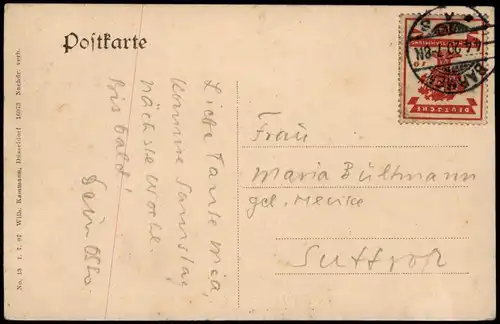 Postkarte
No. 13 1. 7. 07 Wilh. Kaumann, Düsseldorf 16053 Nachdr. verb.
Liebe Tante Mia,
Komme Samstag
nächste Woche.
Bis bald!
Dein Otto.
Frau
Maria Bültmann
gel. Menke
Suttrop
BARMEN
DEUTSCHE